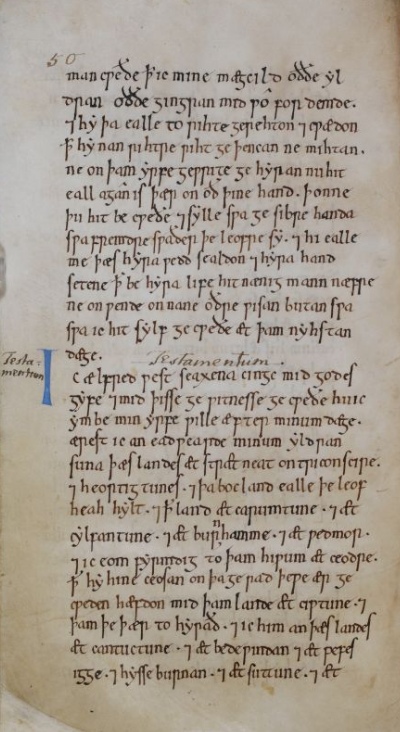 50
man cƿeðe ꝥ ic mine mægcild oððe yl
dran oððe gingran mid ƿo fordemde.
⁊ hy þa ealle to rihte gerehton ⁊ cƿædon
ꝥ hy nan rihtre riht geþencan ne mihtan.
ne on þam yrfe geƿrite ge hyran nu hit
eall agan is þær on oð þine hand. þonne
þu hit be cƿeðe ⁊ sylle sƿa ge sibre handa
sƿa fremdre sƿaðer þe leofre sy. ⁊ hi ealle
me þæs hyra ƿedd sealdon ⁊ hyra hand
setene ꝥ be hyra life hit nænig mann næfre
ne on ƿende on nane oðre ƿisan butan sƿa
sƿa ic hit sylf ge cƿeðe æt þam nyhstan
dæge.
Testamentum.
Testa-
mentum
I C ælfred ƿest seaxena cinge mid godes
gyfe ⁊ mid þisse ge ƿitnesse ge cƿeðe hu ic
ymbe min yrfe ƿille æfter minum dæge.
ærest ic an eadƿearde minum yldran
suna þæs landes æt stræt neat on triconscire.
⁊ heortigtunes. ⁊ þa boc land ealle þe leof
heah hylt. ⁊ ꝥ land æt carumtune. ⁊ æt
cylfantune. ⁊ æt burnhamme. ⁊ æt ƿedmor.
⁊ ic eom fyrmdig to þam hiƿum æt ceodre.
ꝥ hy hine ceosan on þa ge rad þe ƿe ær ge
cƿeden hæfdon mid þam lande æt ciƿtune. ⁊
þam þe þær to hyrað. ⁊ ic him an þæs landes
æt cantuctune. ⁊ æt bedeƿindan ⁊ æt pefes
igge. ⁊ hysseburnan. ⁊ æt suttune. ⁊ æt